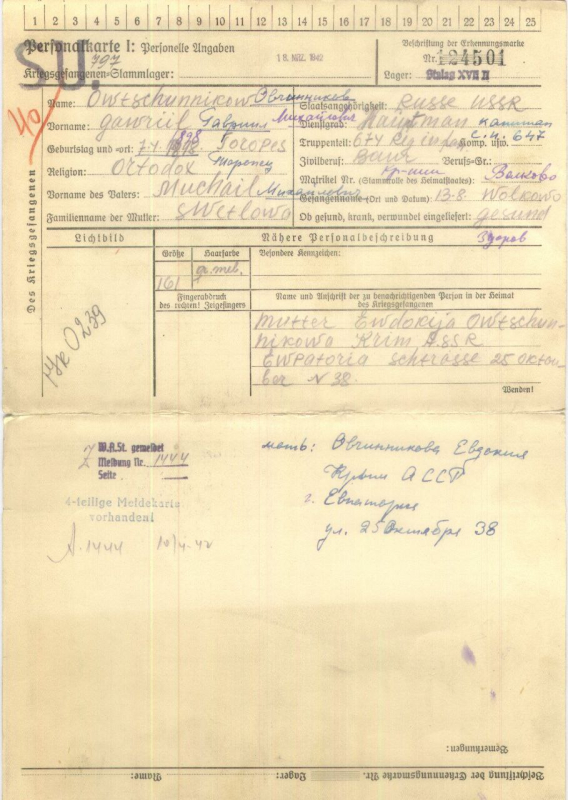 1 2 3 4 5 6 7 8 9 10 11 12 13 14 15 16 17 18 19 20 21 22 23 24 25
SU.
Personalkarte I: Personelle Angaben
797
Kriegsgefangenen-Stammlager:
18. Mrz. 1942
Beschriftung der Erkennungsmarke
Nr. 124501
Lager: Stalag XVII
40
Des Kriegsgefangenen
Name: Owtschunnikow Овчинников
Vorname: Gawriil Гавриил Михайлович
Geburtstag und -ort: 7.4. 1898 Toropes Торопец
Religion: Ortodox
Vorname des Vaters: Muchail Михайлович
Familienname der Mutter: Swetlowa
Staatsangehörigkeit: Russe USSR
Dienstgrad: Hauptman капитан
Truppenteil: 674 Reg infan. Komp. usw.: с.п. 647
Zivilberuf: Baur Berufs-Gr.:
Matrikel Nr. (Stammrolle des Heimatstaates) Волково
Gefangennahme (Ort und Datum) 13-8. Wolkowo
Ob gesund, krank, verwundet eingeliefert: gesund
Здоров
Lichtbild
Nähere Personalbeschreibung
Größe
Haarfarbe
Besondere Kennzeichen:
161
Fingerabdruck
des rechten! Zeigefingers
Name und Anschrift der zu benachrichtigenden Person in der Heimat
des Kriegsgefangenen
Mutter Ewdokija Owtschun-
nikowa Krim ASSR
Ewpatoria Schtrasse 25 Oktou-
ber N 38.
Wenden!
0239
W.A.St. gemeldet
Meldung Nr. 1444
Seite
4-teilige Meldekarte
vorhanden!
A. 1444 10/4-42
мать: Овчинникова Евдокия
Крым АССР
г. Евпатория
ул. 25 Октября 38
Bemerkungen:
Name: Lager: Beschriftung der Erkennungsmarke Nr.